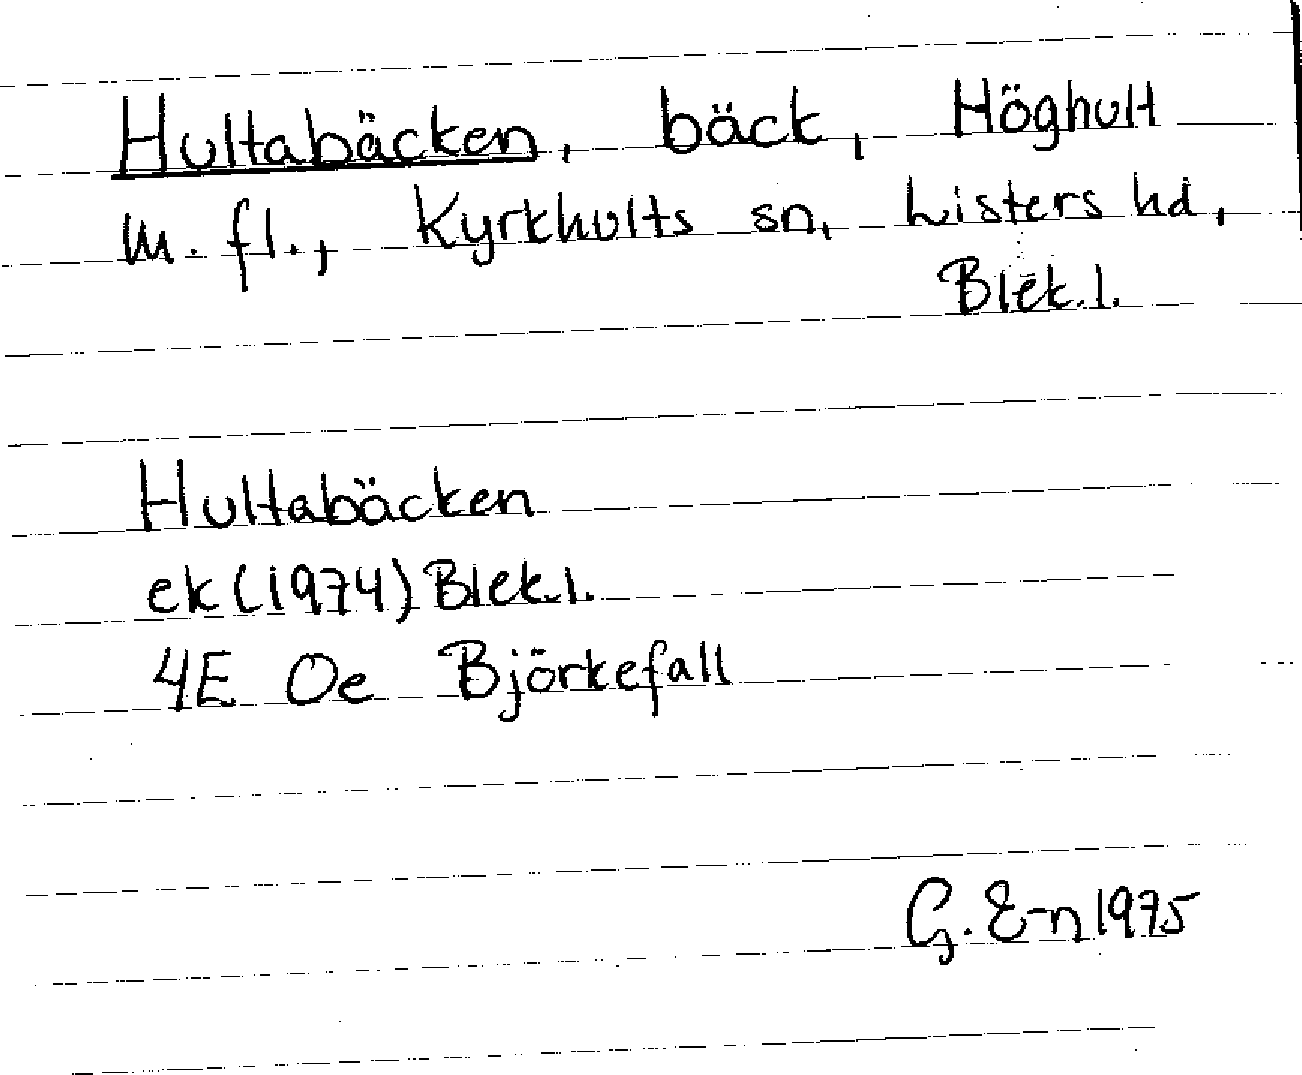 Hultabäcken, bäck, Höghult
m. fl., Kyrkhults sn, Listers hd,
Blek. l.
Hultabäcken
ek (1974) Blek. l.
4E Oe Björkefall
G. E-n 1975